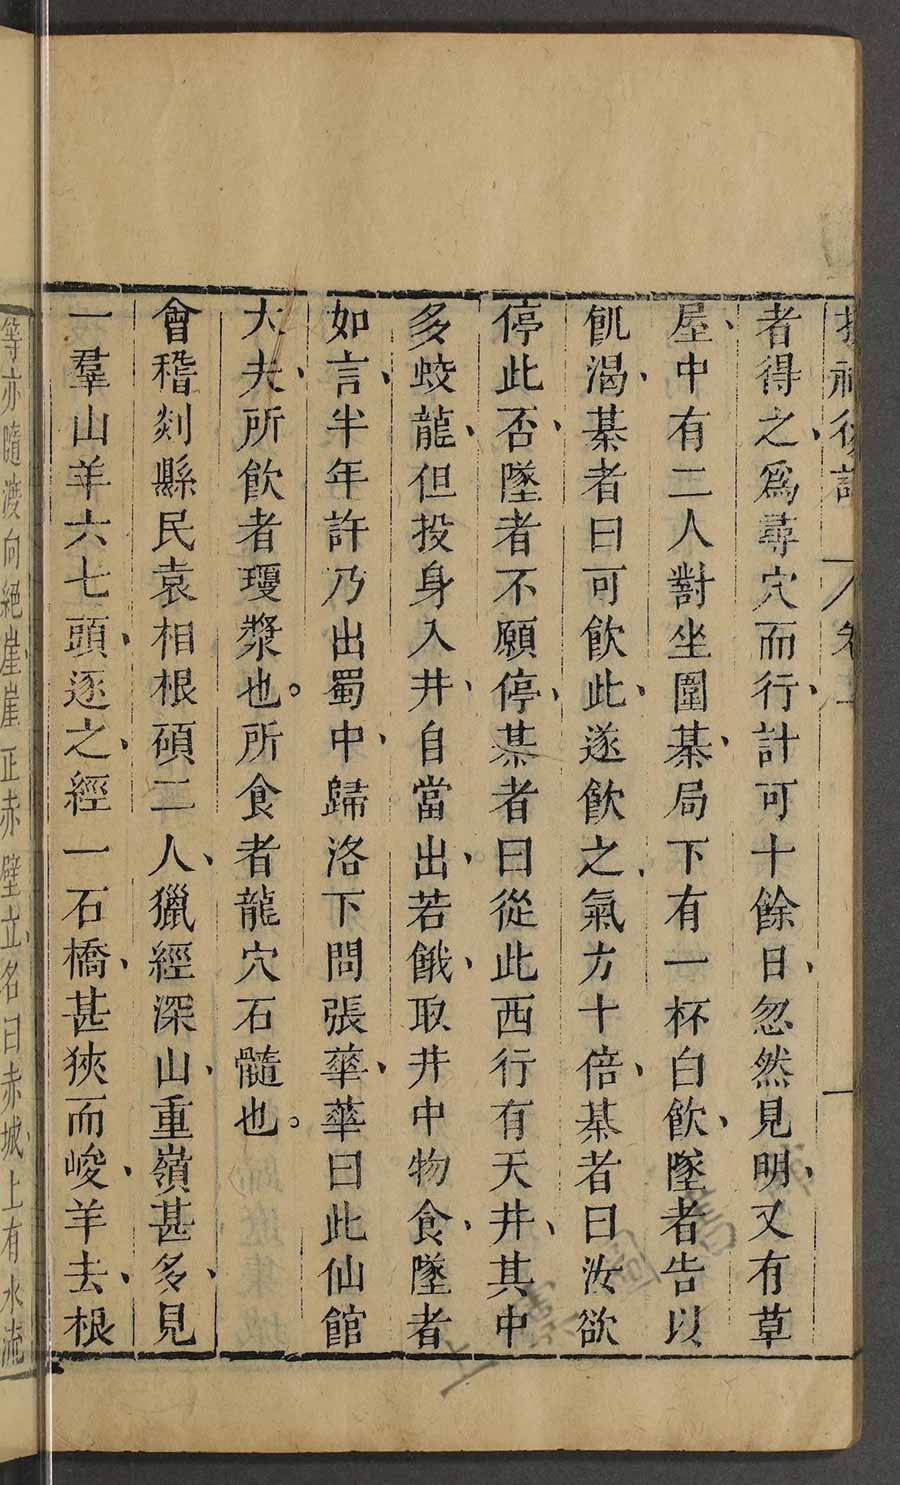 搜神後記 卷一 一
者得之爲尋穴而行計可十餘日忽然見明又有草
屋中有二人對坐圍棊局下有一杯白飲墜者告以
飢渴棊者曰可飲此遂飲之氣力十倍棊者曰汝欲
停此否墜者不願停棊者曰從此西行有天井其中
多蛟龍但投身入井自當出若餓取井中物食墜者
如言半年許乃出蜀中歸洛下問張華華曰此仙館
大夫所飲者瓊漿也。所食者龍穴石髓也。
會稽剡縣民袁相根碩二人獵經深山重嶺甚多見
一羣山羊六七頭逐之經一石橋甚狹而峻羊去根
等亦隨渡向絕崖崖正赤壁立名曰赤城上有水流